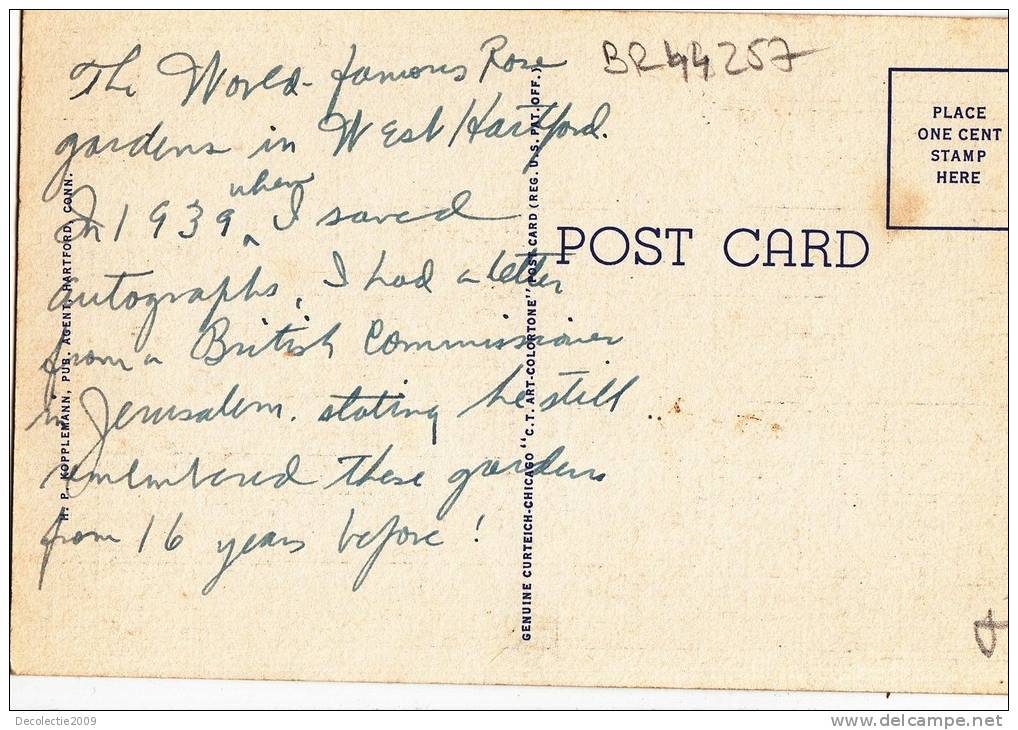 The World-famous Rose
gardens in West Hartford.
In 1939 when I saved
autographs, I had a letter
from a British Commissioner
in Jerusalem. stating he still
remembered these gardens
from 16 years before!
BR44257
PLACE
ONE CENT
STAMP
HERE
POST CARD
H. P. KOPPLEMANN, PUB. AGENT, HARTFORD, CONN.
GENUINE CURTEICH-CHICAGO "C.T. ART-COLORTONE" POST CARD (REG. U.S. PAT. OFF.)
Decolectie2009
www.delcampe.net